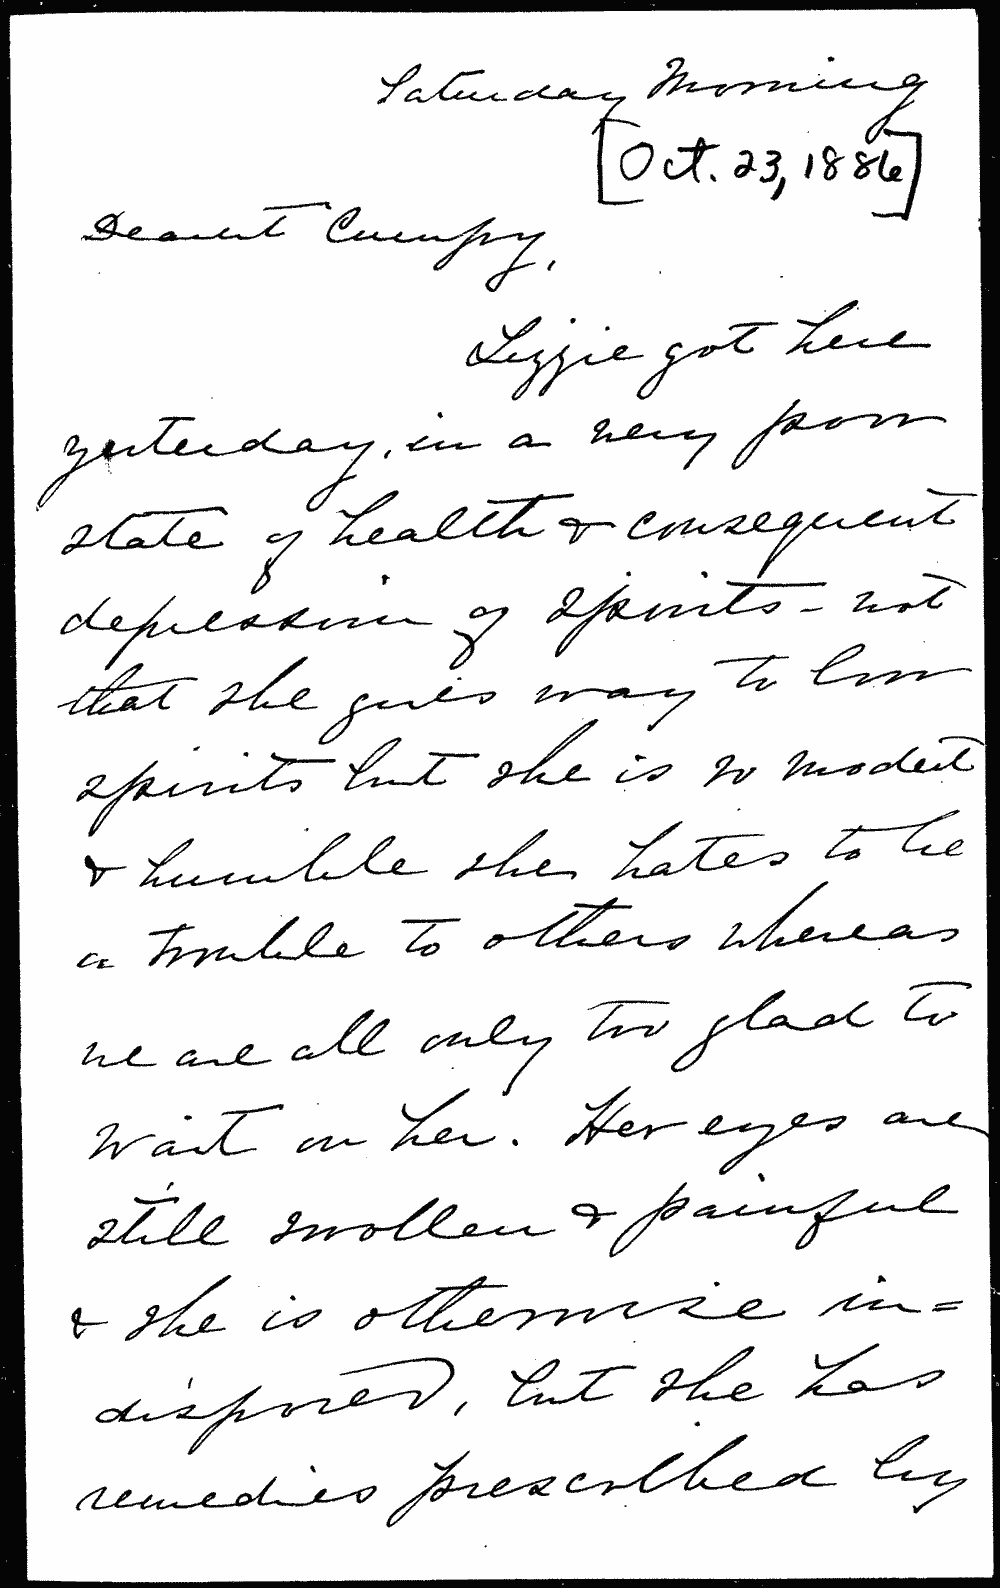 Saturday Morning
[Oct. 23, 1886]
Dearest Crumpy,
Lizzie got here
yesterday, in a very poor
state of health & consequent
depression of spirits - not
that she gives way to low
spirits but she is so modest
& humble she hates to be
a trouble to others whereas
we are all only too glad to
wait on her. Her eyes are
still swollen & painful
& she is otherwise in=
disposed, but she has
remedies prescribed by